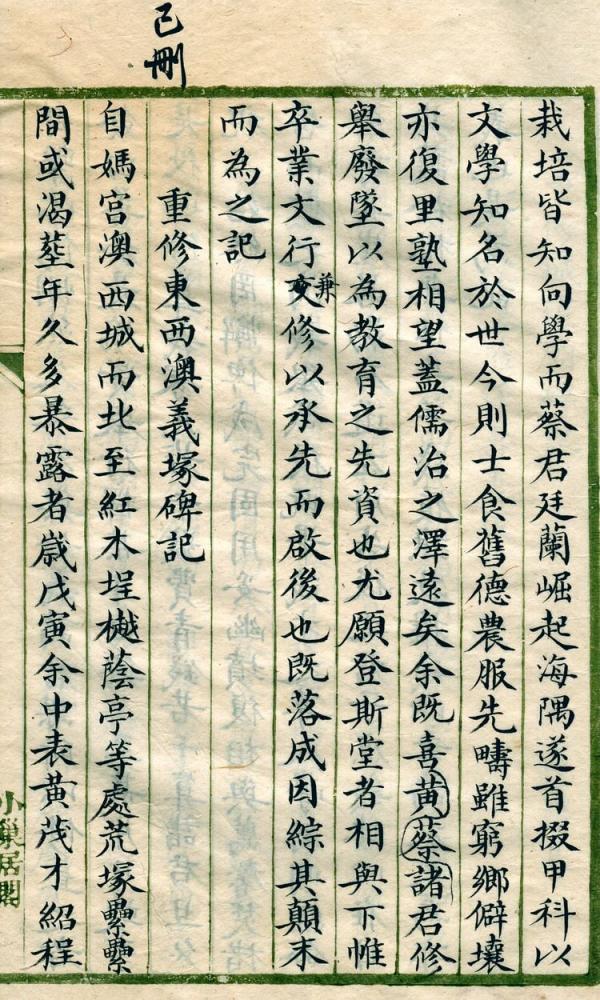 已刪
栽培皆知向學而蔡君廷蘭崛起海隅遂首掇甲科以
文學知名於世今則士食舊德農服先疇雖窮鄉僻壤
亦復里塾相望蓋儒治之澤遠矣余既喜黃蔡諸君修
舉廢墜以為教育之先資也尤願登斯堂者相與下帷
卒業文行交兼修以承先而啟後也既落成因綜其顛末
而為之記
重修東西澳義塚碑記
自媽宮澳西城而北至紅木埕樾蔭亭等處荒塚纍纍
間或渴塟年久多暴露者歲戊寅余中表黃茂才紹程
小巢居閣